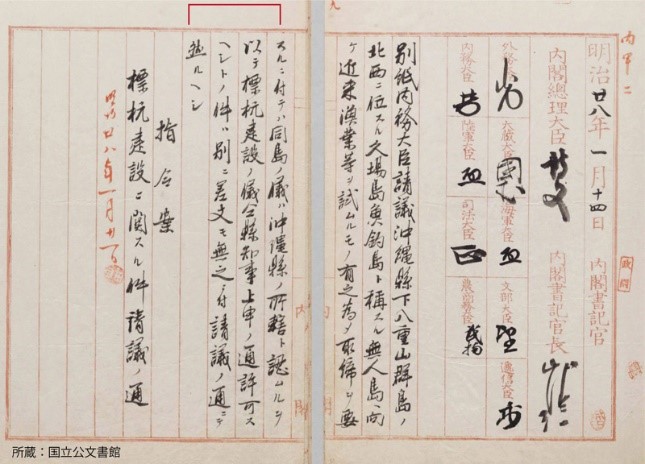 内甲二
明治廿八年一月十四日
内閣書記官
内閣總理大臣
内閣書記官長
外務大臣
大藏大臣
海軍大臣
文部大臣
遞信大臣
内務大臣
陸軍大臣
司法大臣
農商務大臣
別紙内務大臣請議沖縄縣下八重山群島ノ
北西ニ位スル久場島魚釣島ト称スル無人島ヘ向
ケ近来漁業等ヲ試ムルモノ有之為メ取締ヲ要
スルニ付テハ同島ノ儀ハ沖縄縣ノ所轄ト認ムルヲ
以テ標杭建設ノ儀仝縣知事上申ノ通許可ス
ヘシトノ件ハ別ニ差支モ無之ニ付請議ノ通ニテ
然ルヘシ
指令案
標杭建設ニ関スル件請議ノ通
明治廿八年一月廿一日
所蔵：国立公文書館